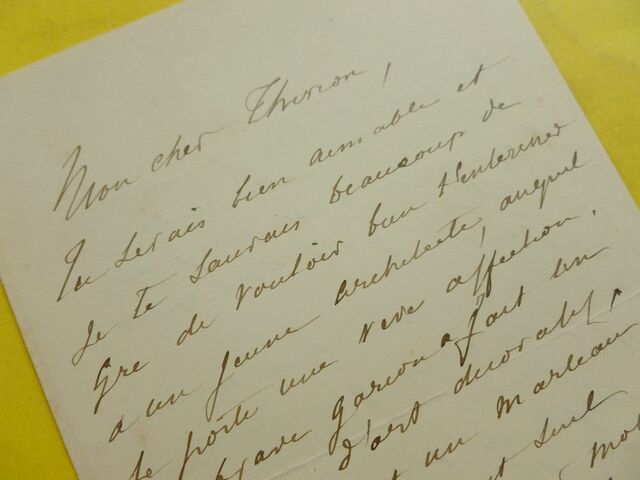 Mon cher Thirion,
Tu serais bien aimable et
je te saurais beaucoup de
gré de vouloir bien t'intéresser
a un jeune architecte, auquel
je porte une vive affection.
brave garcon a fait un
d'art décoratif,
un marteau
seul